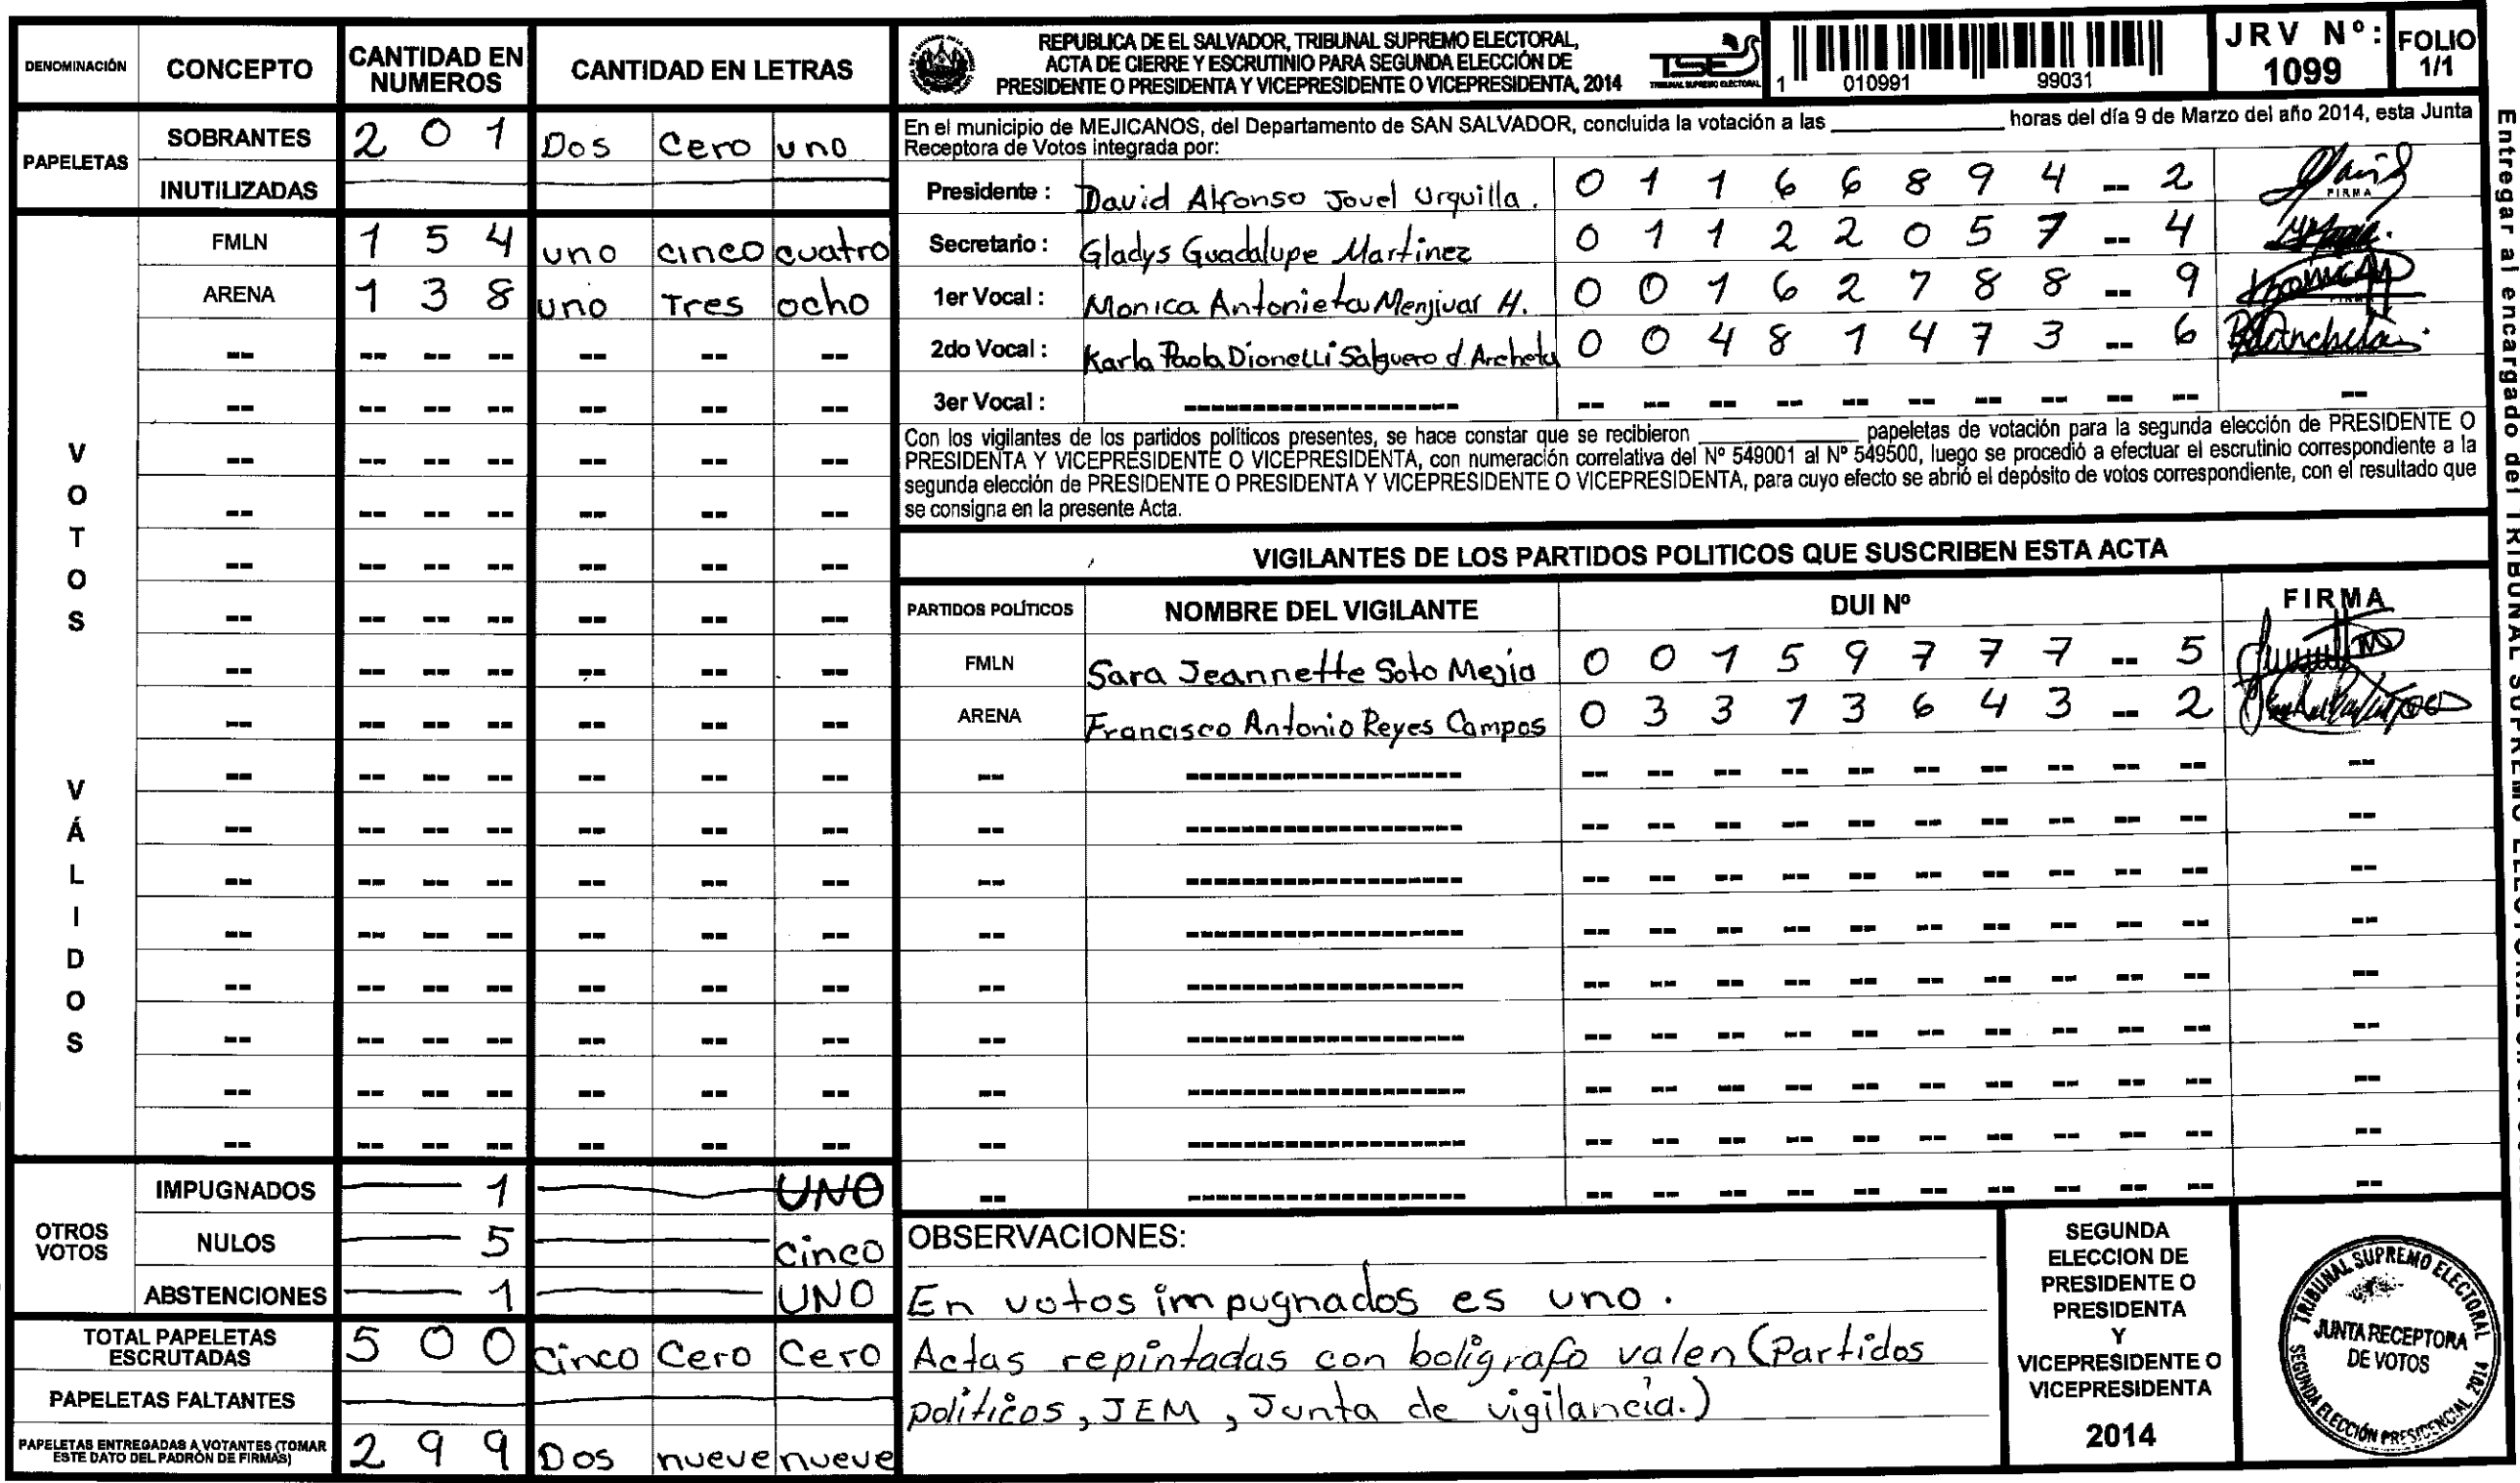 DENOMINACIÓN CONCEPTO CANTIDAD EN NUMEROS CANTIDAD EN LETRAS
PAPELETAS
SOBRANTES 2 0 1 Dos Cero uno
INUTILIZADAS
VOTOS VÁLIDOS
FMLN 1 5 4 uno cinco cuatro
ARENA 1 3 8 uno Tres ocho
OTROS VOTOS
IMPUGNADOS 1 UNO
NULOS 5 cinco
ABSTENCIONES 1 UNO
TOTAL PAPELETAS ESCRUTADAS 5 0 0 cinco Cero Cero
PAPELETAS FALTANTES
PAPELETAS ENTREGADAS A VOTANTES (TOMAR ESTE DATO DEL PADRÓN DE FIRMAS) 2 9 9 Dos nueve nueve
REPUBLICA DE EL SALVADOR, TRIBUNAL SUPREMO ELECTORAL,
ACTA DE CIERRE Y ESCRUTINIO PARA SEGUNDA ELECCIÓN DE
PRESIDENTE O PRESIDENTA Y VICEPRESIDENTE O VICEPRESIDENTA, 2014
TSE
TRIBUNAL SUPREMO ELECTORAL
1 010991 99031
JRV Nº: 1099
FOLIO 1/1
En el municipio de MEJICANOS, del Departamento de SAN SALVADOR, concluida la votación a las ____________ horas del día 9 de Marzo del año 2014, esta Junta
Receptora de Votos integrada por:
Presidente : David Alfonso Jovel Urquilla. 0 1 1 6 6 8 9 4 -- 2 FIRMA
Secretario : Gladys Guadalupe Martinez 0 1 1 2 2 0 5 7 -- 4
1er Vocal : Monica Antonieta Menjivar H. 0 0 1 6 2 7 8 8 -- 9
2do Vocal : Karla Paola Dionelli Salguero d. Archeta 0 0 4 8 1 4 7 3 -- 6
3er Vocal :
Con los vigilantes de los partidos políticos presentes, se hace constar que se recibieron ____________ papeletas de votación para la segunda elección de PRESIDENTE O
PRESIDENTA Y VICEPRESIDENTE O VICEPRESIDENTA, con numeración correlativa del Nº 549001 al Nº 549500, luego se procedió a efectuar el escrutinio correspondiente a la
segunda elección de PRESIDENTE O PRESIDENTA Y VICEPRESIDENTE O VICEPRESIDENTA, para cuyo efecto se abrió el depósito de votos correspondiente, con el resultado que
se consigna en la presente Acta.
VIGILANTES DE LOS PARTIDOS POLITICOS QUE SUSCRIBEN ESTA ACTA
PARTIDOS POLÍTICOS NOMBRE DEL VIGILANTE DUI Nº FIRMA
FMLN Sara Jeannette Soto Mejia 0 0 1 5 9 7 7 7 -- 5
ARENA Francisco Antonio Reyes Campos 0 3 3 1 3 6 4 3 -- 2
OBSERVACIONES:
En votos impugnados es uno.
Actas repintadas con boligrafo valen (Partidos
politicos, JEM, Junta de vigilancia.)
SEGUNDA
ELECCION DE
PRESIDENTE O
PRESIDENTA
Y
VICEPRESIDENTE O
VICEPRESIDENTA
2014
TRIBUNAL SUPREMO ELECTORAL
JUNTA RECEPTORA
DE VOTOS
SEGUNDA ELECCIÓN PRESIDENCIAL 2014
Entregar al encargado del TRIBUNAL SUPREMO